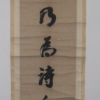 乃為詩